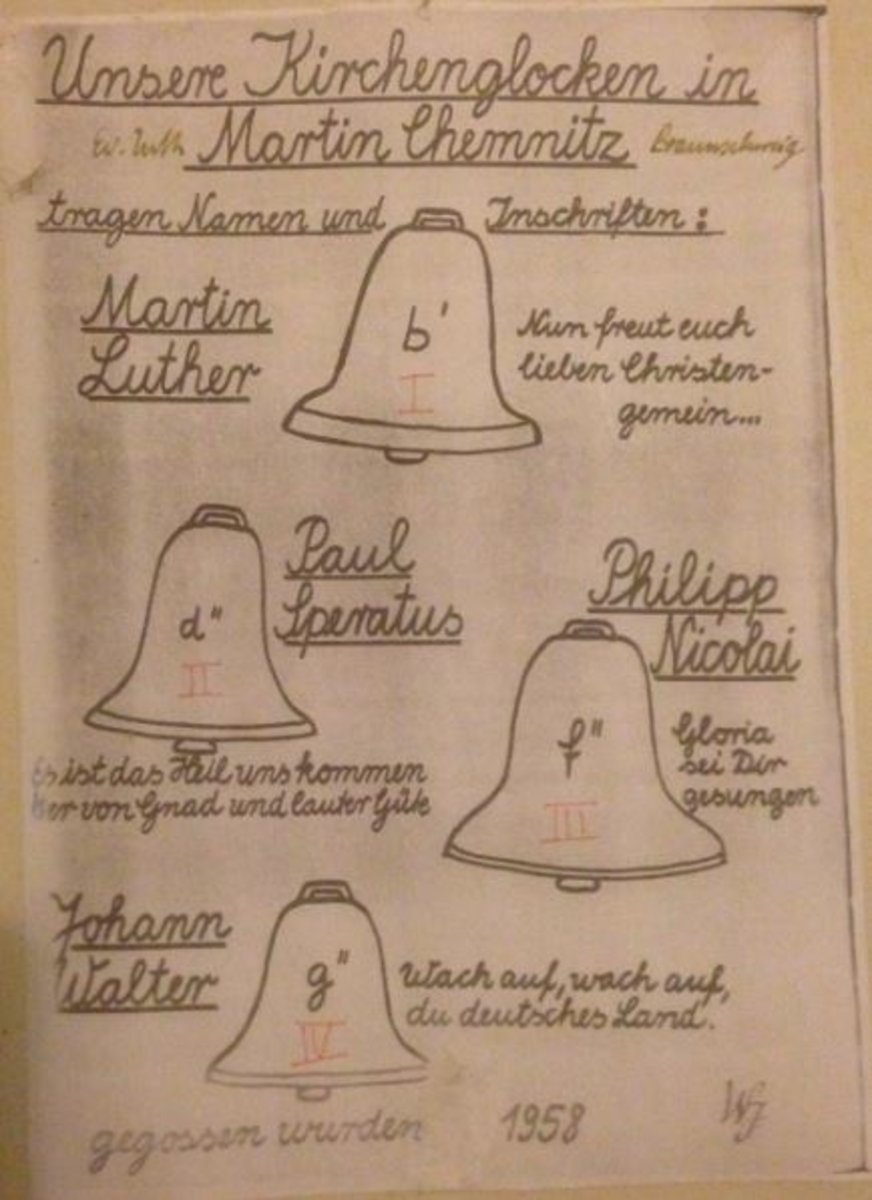 Unsere Kirchenglocken in
ev. luth Martin Chemnitz Braunschweig
tragen Namen und Inschriften:
Martin
Luther
b'
I
Nun freut euch
lieben Christen-
gemein...
Paul
Speratus
d"
II
Es ist das Heil uns kommen
her von Gnad und lauter Güte
Philipp
Nicolai
f"
III
Gloria
sei Dir
gesungen
Johann
Walter
g"
IV
Wach auf, wach auf,
du deutsches Land.
gegossen wurden 1958